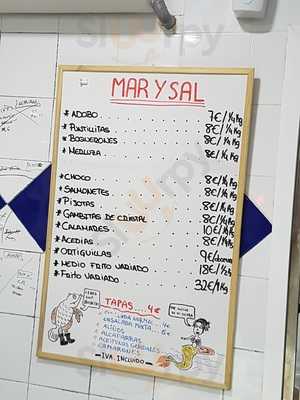 MAR Y SAL
* ADOBO . . . . . . . 7€/¼Kg
* PUNTILLITAS . . . . . . . 8€/¼Kg
* BOQUERONES . . . . . . . 8€/¼Kg
* MERLUZA . . . . . . . 8€/¼Kg
* CHOCO . . . . . . . 8€/¼Kg
* SALMONETES . . . . . . . 8€/¼Kg
* PIJOTAS . . . . . . . 8€/¼Kg
* GAMBITAS DE CRISTAL . . . . 8€/¼Kg
* CALAMARES . . . . . . . 10€/¼Kg
* ACEDIAS . . . . . . . 8€/¼Kg
* ORTIGUILLAS . . . . . . . 9€/docena
* MEDIO FRITO VARIADO . . . . 18€/½Kg
* FRITO VARIADO . . . . . . . 32€/1Kg
TAPAS....4€
ENSALADA NORMAL 4€
ENSALADA MIXTA
ALIÑOS
ALCAPARRAS
ACEITUNAS
CAMARONES
- IVA. INCLUIDO -